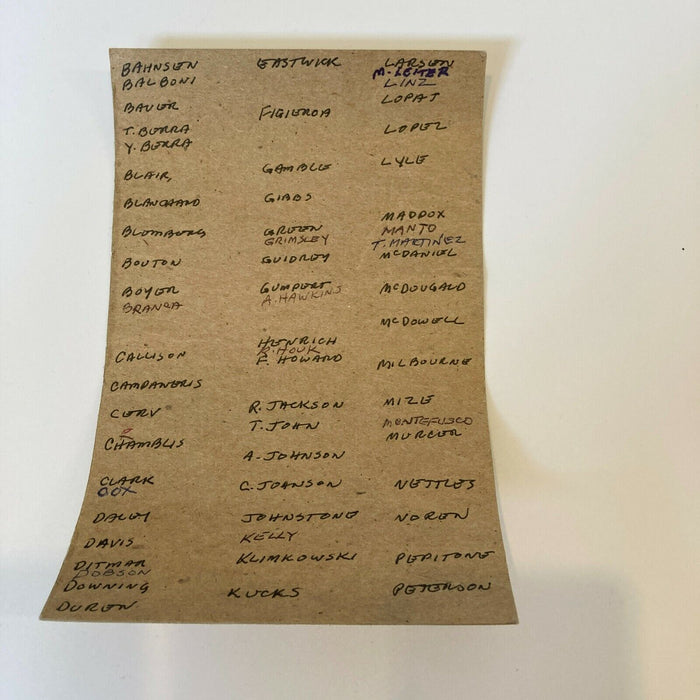 BAHNSEN
BALBONI
BAUER
T. BERRA
Y. BERRA
BLAIR,
BLANCHARD
BLOMBERG
BOUTON
BOYER
BRANCA
CALLISON
CAMPANERIS
CERV
CHAMBLIS
CLARK
COX
DALEY
DAVIS
DITMAR
DOBSON
DOWNING
DUREN
EASTWICK
FIGUEROA
GAMBLE
GIBBS
GREEN
GRIMSLEY
GUIDREY
GUMPERT
A. HAWKINS
HENRICH
R. HOUK
F. HOWARD
R. JACKSON
T. JOHN
A. JOHNSON
C. JOHNSON
JOHNSTONE
KELLY
KLIMKOWSKI
KUCKS
LARSEN
M. LEITER
LINZ
LOPAT
LOPEZ
LYLE
MADDOX
MANTO
T. MARTINEZ
McDANIEL
McDOUGALD
McDOWELL
MILBOURNE
MIZE
MONTEFUSCO
MURCER
NETTLES
NOREN
PEPITONE
PETERSON